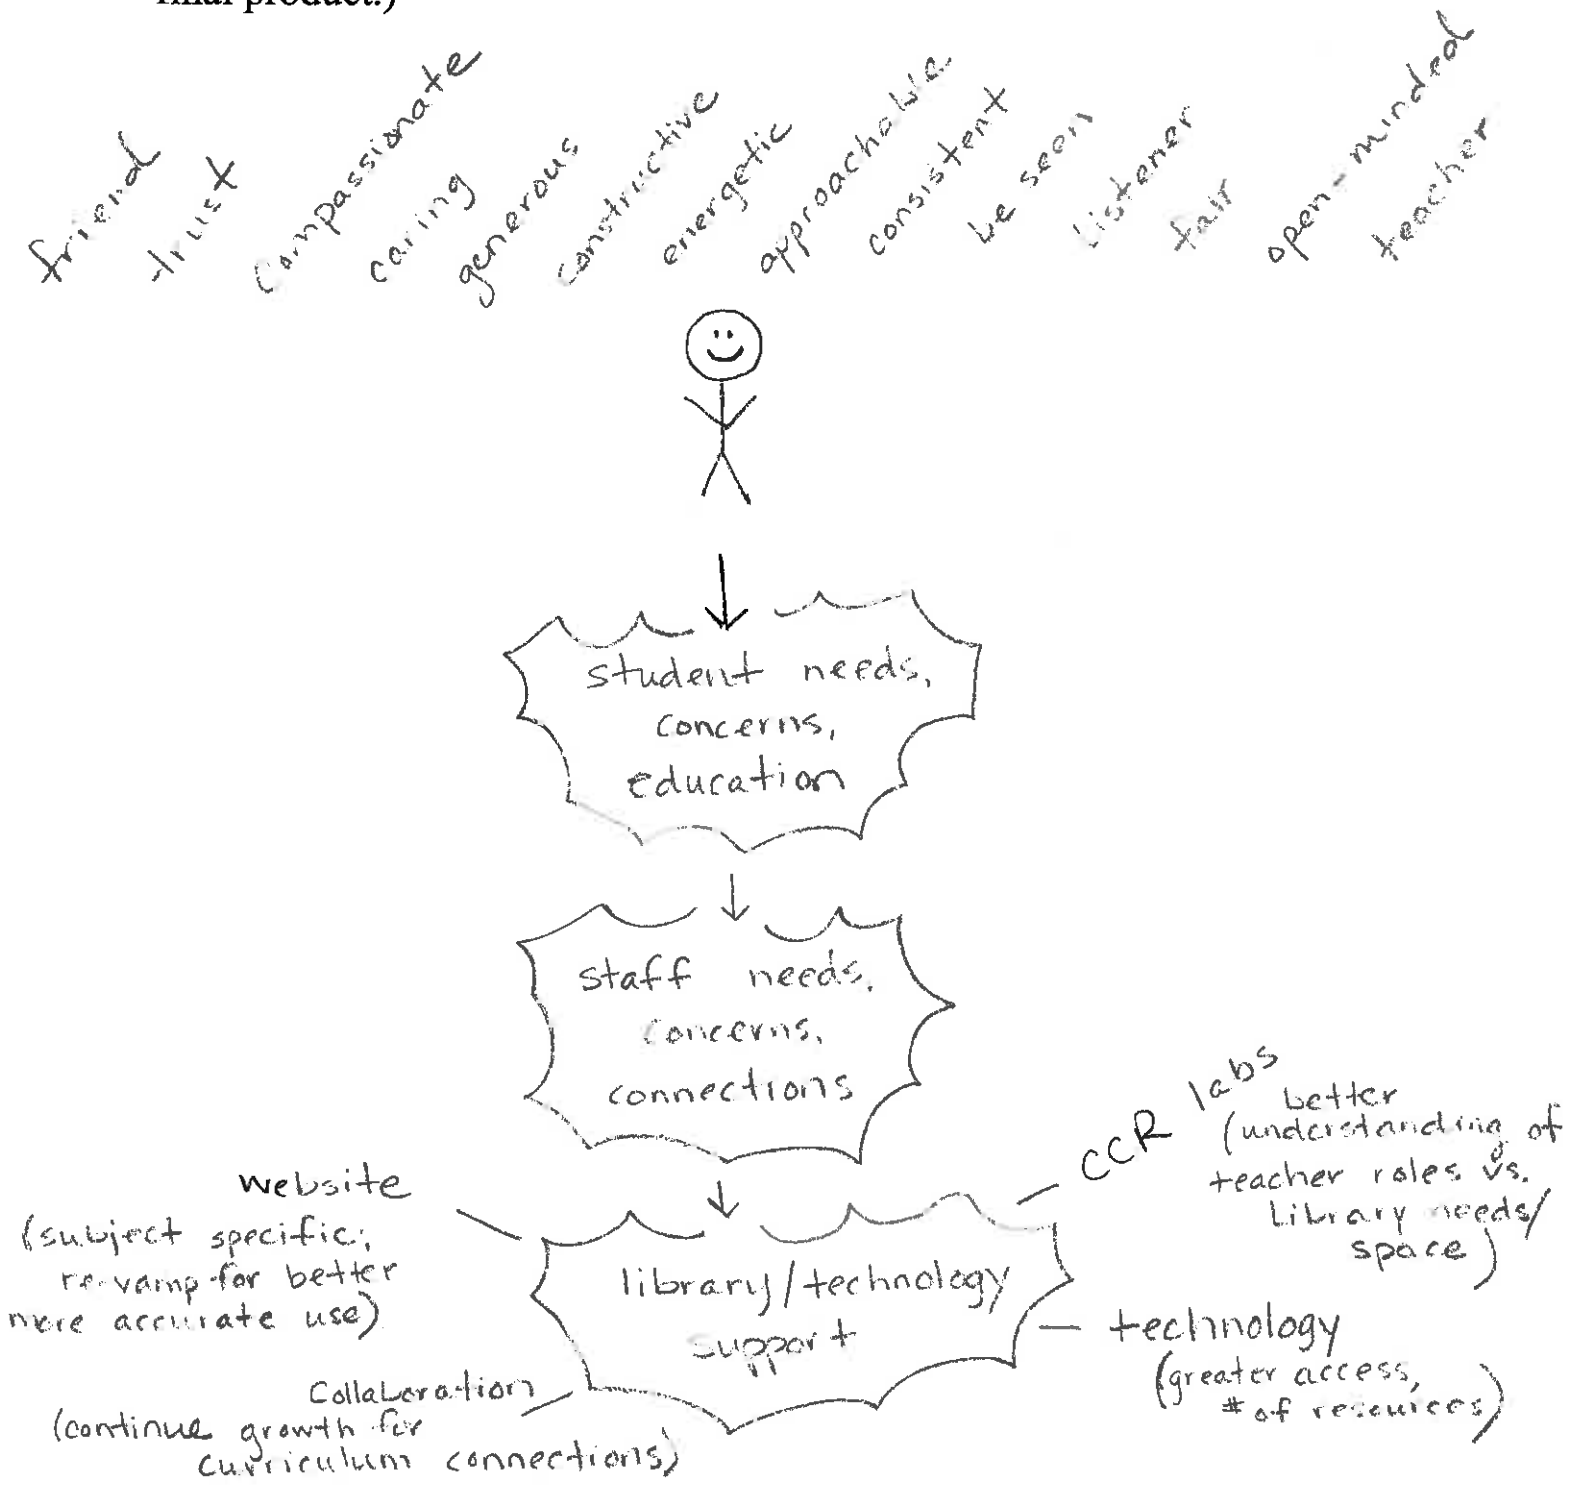 final product.)
friend
trust
compassionate
caring
generous
constructive
energetic
approachable
consistent
be seen
Listener
fair
open-minded
teacher
student needs,
concerns,
education
staff needs,
concerns,
connections
library/technology
support
website
(subject specific;
re-vamp for better
more accurate use)
Collaboration
(continue growth for
curriculum connections)
CCR labs
better
(understanding of
teacher roles vs.
Library needs/
space)
technology
(greater access,
# of resources)